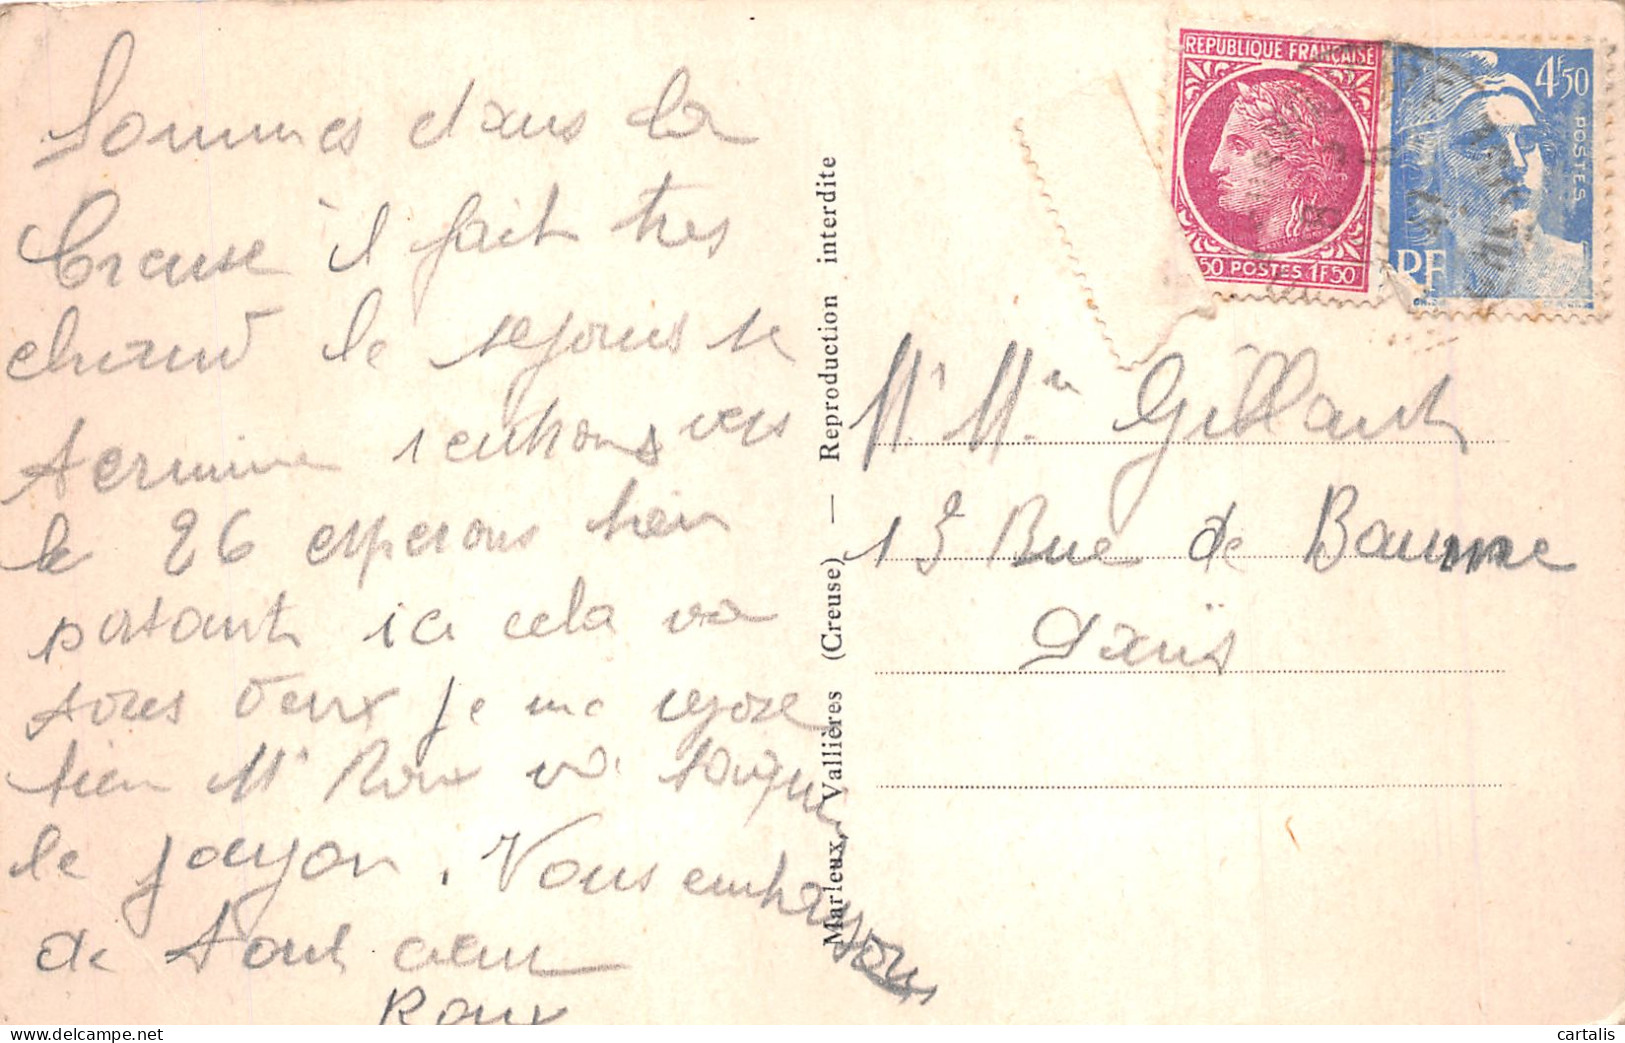 Sommes dans la
Creuse il fait tres
chaud le sejours se
termine rentrons vers
le 26 esperons bien
portant ici cela va
tres deux je me repose
bien Mr Roux va
le . Vous embrassons
de tout cœur
Roux
Marleux, Vallières (Creuse) — Reproduction interdite
REPUBLIQUE FRANÇAISE
50 POSTES 1F50
4F50
POSTES
RF
Mr Mm Gillant
13 Rue de Baume
Paris
cartalis